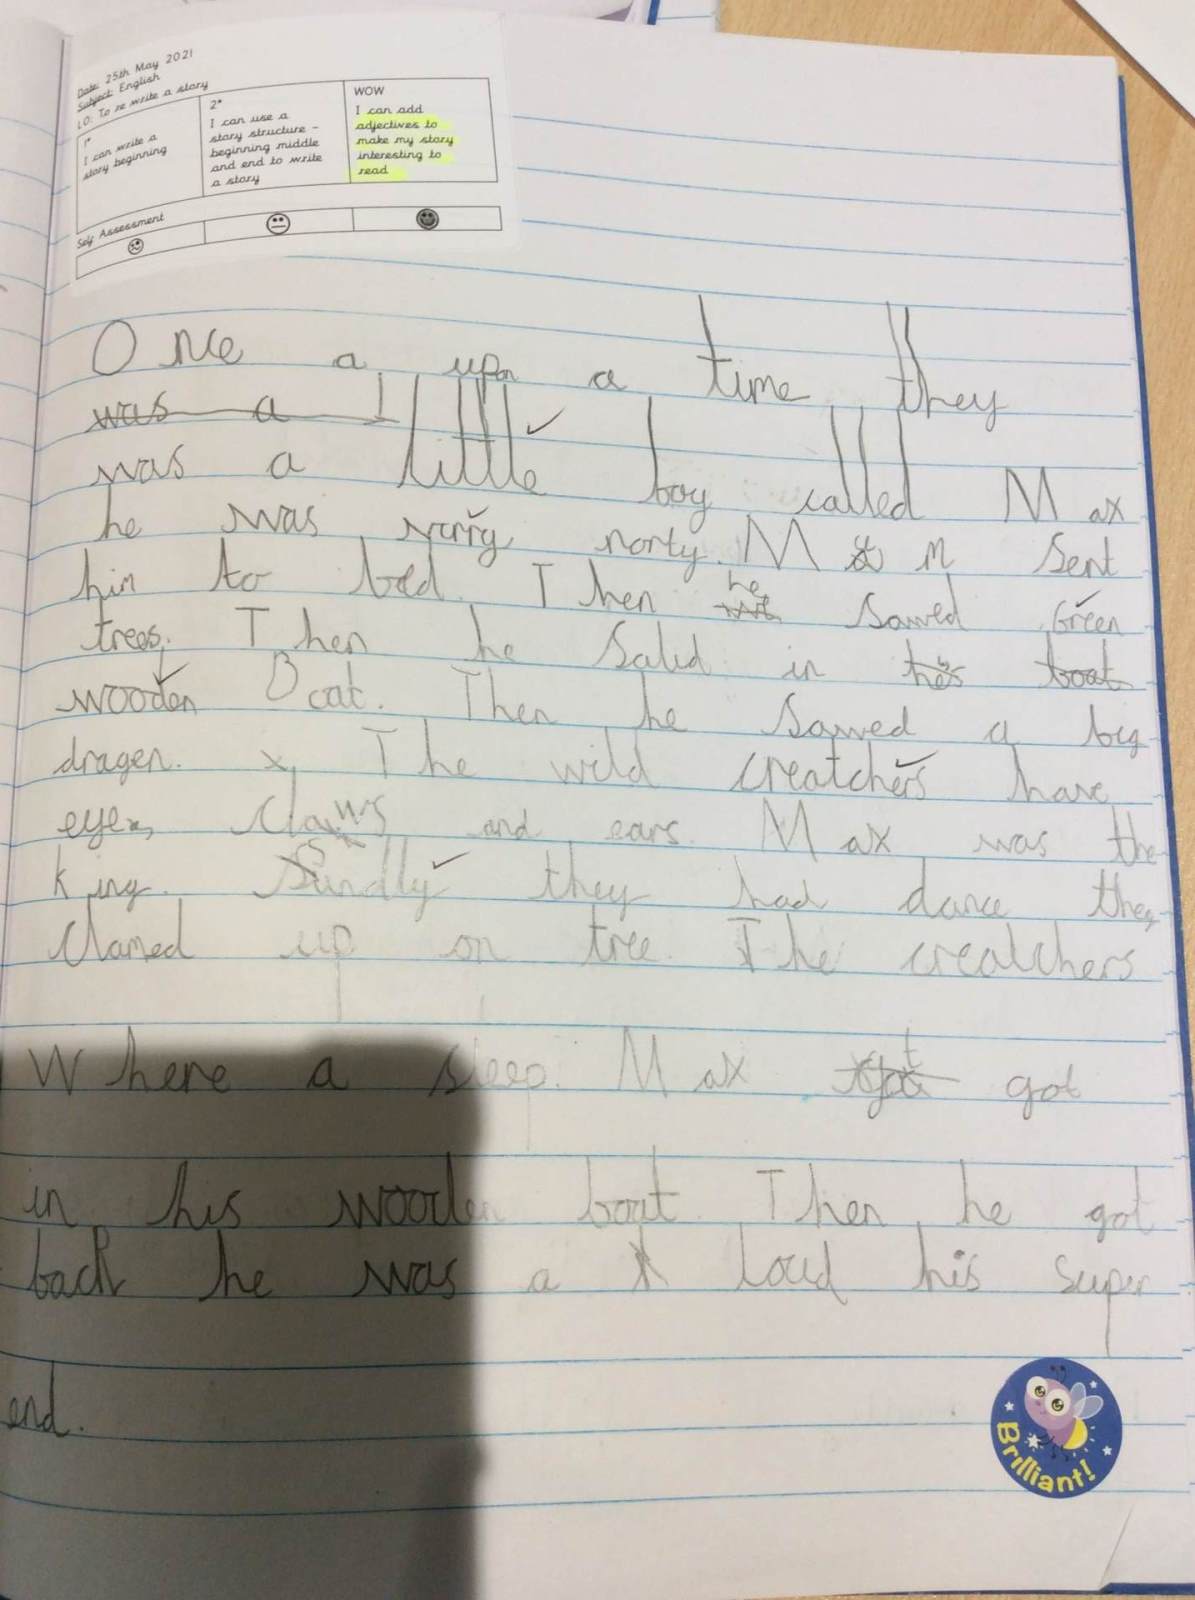 Date: 25th May 2021
Subject: English
LO: To re write a story
1*
I can write a
story beginning
2*
I can use a
story structure -
beginning middle
and end to write
a story
WOW
I can add
adjectives to
make my story
interesting to
read
Self Assessment
Once a upon a time they
was a l
was a little boy called Max
he was varry norty. Mum sent
him to bed. Then he sawed Green
trees. Then he Saled in his boat
wooden Boat. Then he sawed a big
dragen. The wild creatchers have
eyes, claws and ears. Max was the
king. Sundlly they had dance they
clamed up on tree. The creatchers
Where a sleep. Max got got
in his wooden boat. Then he got
back he was a loud his super
end.
Brilliant!